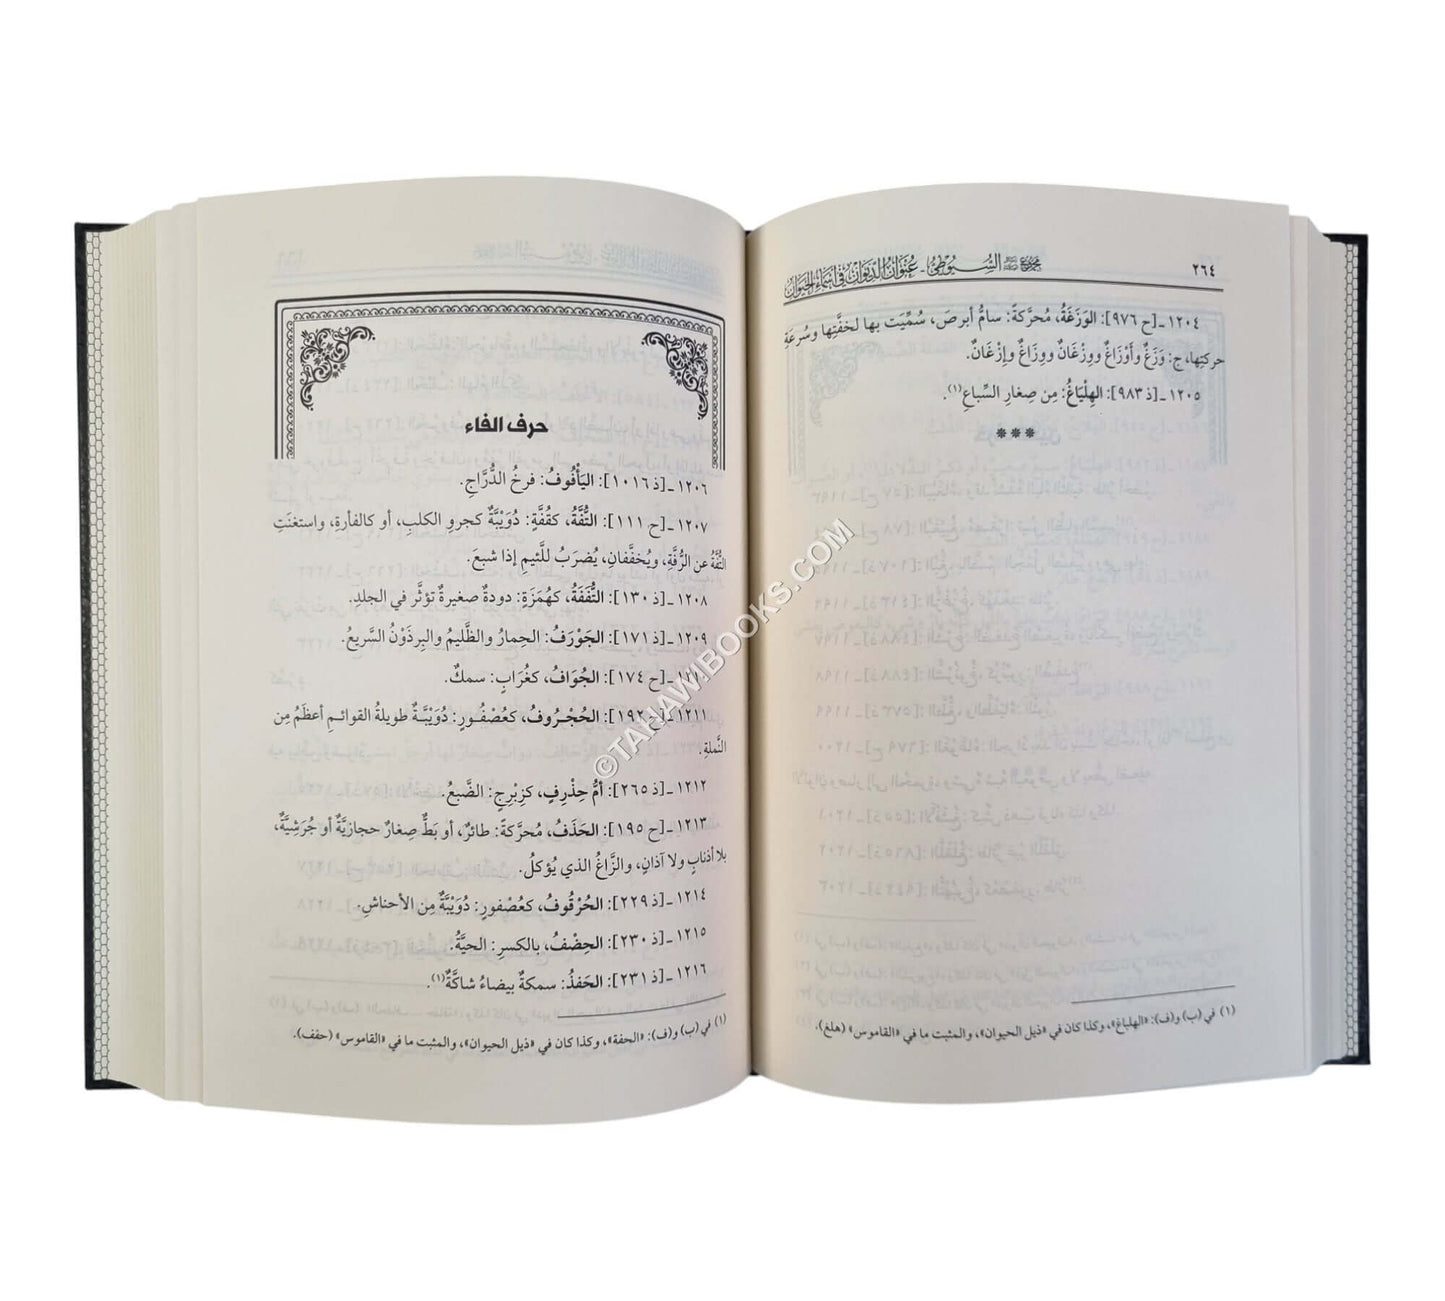 ٢٦٤
مجموع السيوطي - عنوان الديوان في أسماء الحيوان
١٢٠٤ ـ [ح ٩٧٦]: الوَزَغَةُ، مُحرَّكةً: سامُّ أبرصَ، سُمِّيَت بها لخفَّتِها وسُرعَةِ
حركتِها، ج: وَزَغٌ وأَوْزَاغٌ ووِزْغَانٌ ووِزَاغٌ وإِزْغَانٌ.
١٢٠٥ ـ [ذ ٩٨٣]: الهِلْيَاغُ: مِن صِغارِ السِّباعِ(١).
***
(١) في (ب) و(ف): «الهلباغ»، وكذا كان في «ذيل الحيوان»، والمثبت ما في «القاموس» (هلغ).
حرف الفاء
١٢٠٦ ـ [ذ ١٠١٦]: اليَأْفُوفُ: فرخُ الدُّرَّاجِ.
١٢٠٧ ـ [ح ١١١]: التُّفَّةُ، كقُفَّةٍ: دُوَيْبَّةٌ كجروِ الكلبِ، أو كالفأرةِ، واستغنَتِ
التُّفَّةُ عن الرُّفَّةِ، ويُخفَّفانِ، يُضرَبُ للَّئيمِ إذا شبعَ.
١٢٠٨ ـ [ذ ١٣٠]: التُّفَفَةُ، كهُمَزَةٍ: دودةٌ صغيرةٌ تؤثَّر في الجلدِ.
١٢٠٩ ـ [ذ ١٧١]: الجَوْرَفُ: الحِمارُ والظَّليمُ والبِرذَوْنُ السَّريعُ.
١٢١٠ ـ [ح ١٧٤]: الجُوَافُ، كغُرَابٍ: سمكٌ.
١٢١١ ـ [ ١٩٢]: الحُجْرُوفُ، كعُصْفُورٍ: دُوَيْبَّةٌ طويلةُ القوائمِ أعظَمُ مِن
النَّملةِ.
١٢١٢ ـ [ذ ٢٦٥]: أمُّ حِذْرِفٍ، كزِبْرِجٍ: الضَّبعُ.
١٢١٣ ـ [ح ١٩٥]: الحَذَفُ، مُحرَّكةً: طائرٌ، أو بَطٌّ صِغارٌ حجازيَّةٌ أو جُرَشِيَّةٌ،
بلا أذنابٍ ولا آذانٍ، والزَّاغُ الذي يُؤكلُ.
١٢١٤ ـ [ذ ٢٢٩]: الحُرْقُوفُ، كعُصْفورٍ: دُوَيْبَّةٌ مِن الأحناشِ.
١٢١٥ ـ [ذ ٢٣٠]: الحِضْفُ، بالكسرِ: الحيَّةُ.
١٢١٦ ـ [ذ ٢٣١]: الحَفذُ: سمكةٌ بيضاءُ شاكَّةٌ(١).
(١) في (ب) و(ف): «الحفة»، وكذا كان في «ذيل الحيوان»، والمثبت ما في «القاموس» (حفف).
©TAHAWIBOOKS.COM